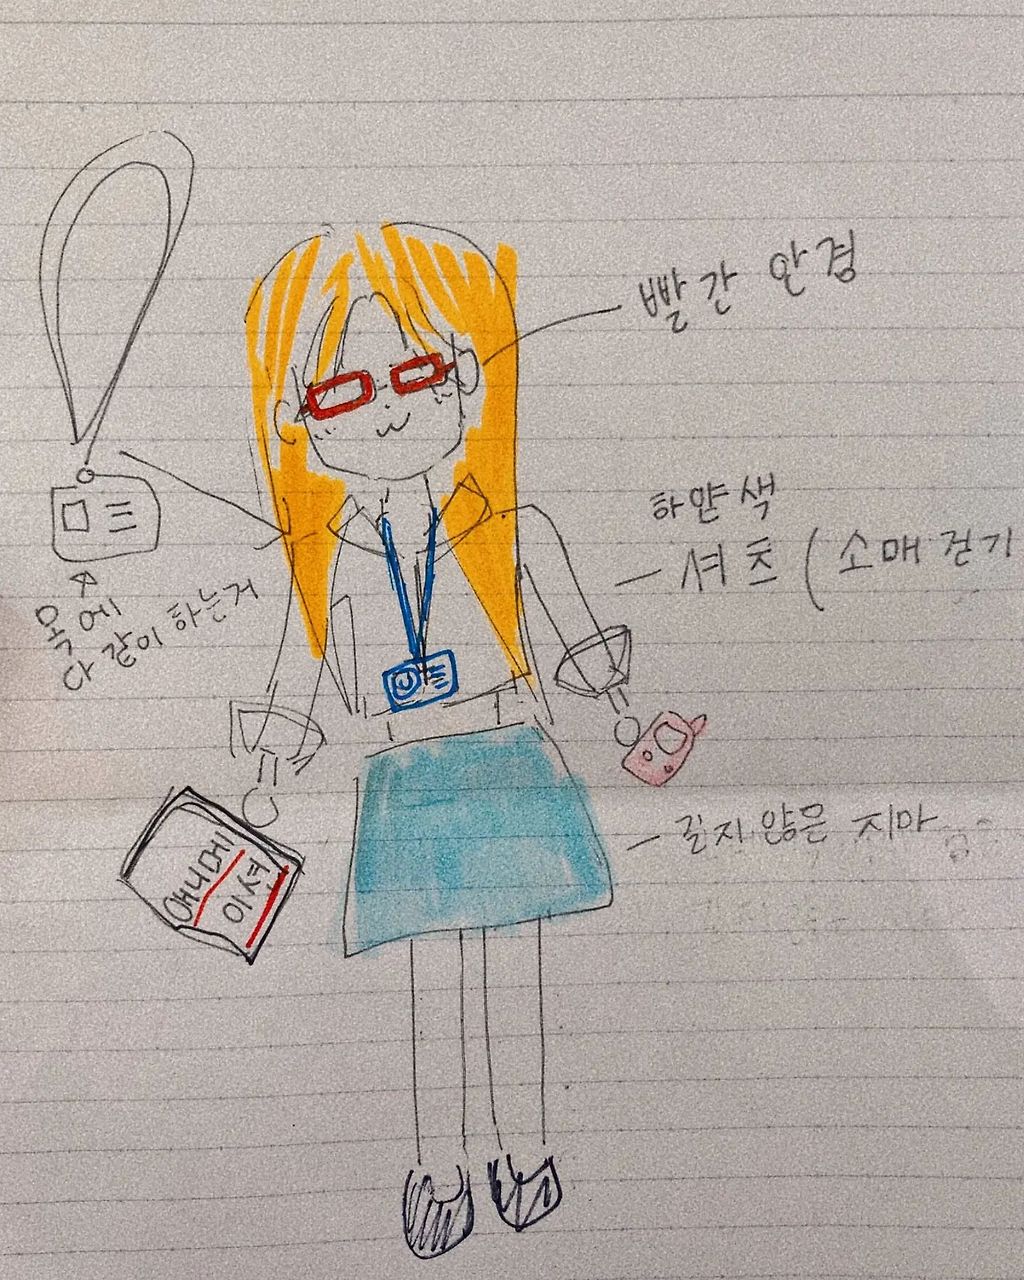 빨간 안경
하얀색
셔츠 (소매 걷기
목에
다 같이 하는거
길지 않은 치마
애니메
이셔